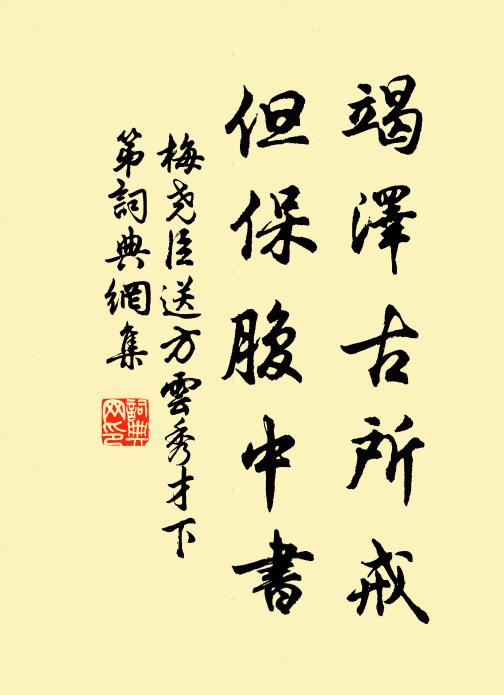 竭澤古所戒
但保腹中書
梅尧臣送方雲秀才下
第詞典網集
詞典
网印